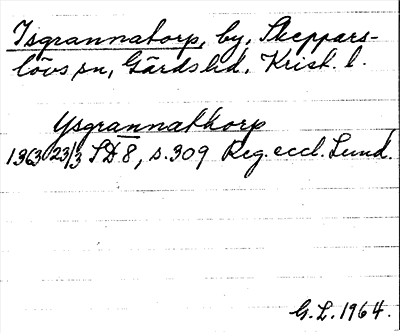 Isgrannatorp, by, Skeppars-
lövs sn, Gärds hd, Krist. l.
Ysgrannathorp
1363 23/3 SD 8, s. 309 Reg. eccl. Lund.
G. L. 1964.